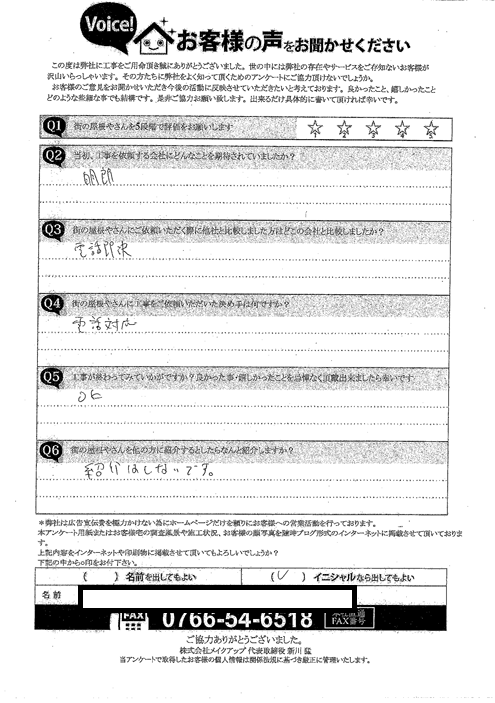 Voice!
お客様の声をお聞かせください
この度は弊社に工事をご用命頂き誠にありがとうございました。世の中には弊社の存在やサービスをご存知ないお客様が
沢山いらっしゃいます。その方たちに弊社をよく知って頂くためのアンケートにご協力頂けないでしょうか。
お客様のご意見をお聞かせいただき今後の活動に反映させていただきたいと考えております。良かったこと、嬉しかったこと
どのような些細な事でも結構です。是非ご協力お願い致します。出来るだけ具体的に書いて頂ければ幸いです。
Q1 街の屋根やさんを5段階で評価をお願いします
1 2 3 4 5
Q2 当初、工事を依頼する会社にどんなことを期待されていましたか？
明朗
Q3 街の屋根やさんにご依頼いただく際に他社と比較しました方はどこの会社と比較しましたか？
電話即決
Q4 街の屋根やさんに工事をご依頼いただいた決め手は何ですか？
電話対応
Q5 工事が終わってみていかがですか？良かった事・嬉しかったことを忌憚なく頂戴出来ましたら幸いです
OK
Q6 街の屋根やさんを他の方に紹介するとしたらなんと紹介しますか？
紹介はしないです。
＊弊社は広告宣伝費を極力かけない為にホームページだけを頼りにお客様への営業活動を行っております。
本アンケート用紙またはお客様宅の調査風景や施工状況、お客様の顔写真を随時ブログ形式のインターネットに掲載させて頂いておりま
す。
上記内容をインターネットや印刷物に掲載させて頂いてもよろしいでしょうか？
下記の中から○印をお付下さい。
（ ）名前を出してもよい （✓）イニシャルなら出してもよい
名前
FAX 0766-54-6518 FAX番号
ご協力ありがとうございました。
株式会社メイクアップ 代表取締役 新川 猛
当アンケートで取得したお客様の個人情報は関係法規に基づき厳正に管理いたします。